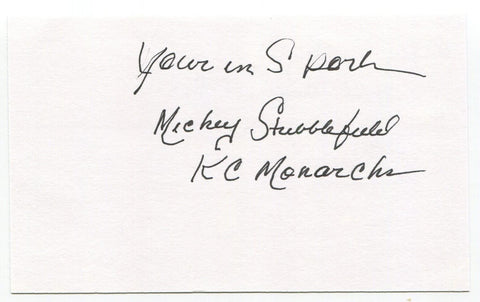 Your in Sport
Mickey Stubblefield
KC Monarchs